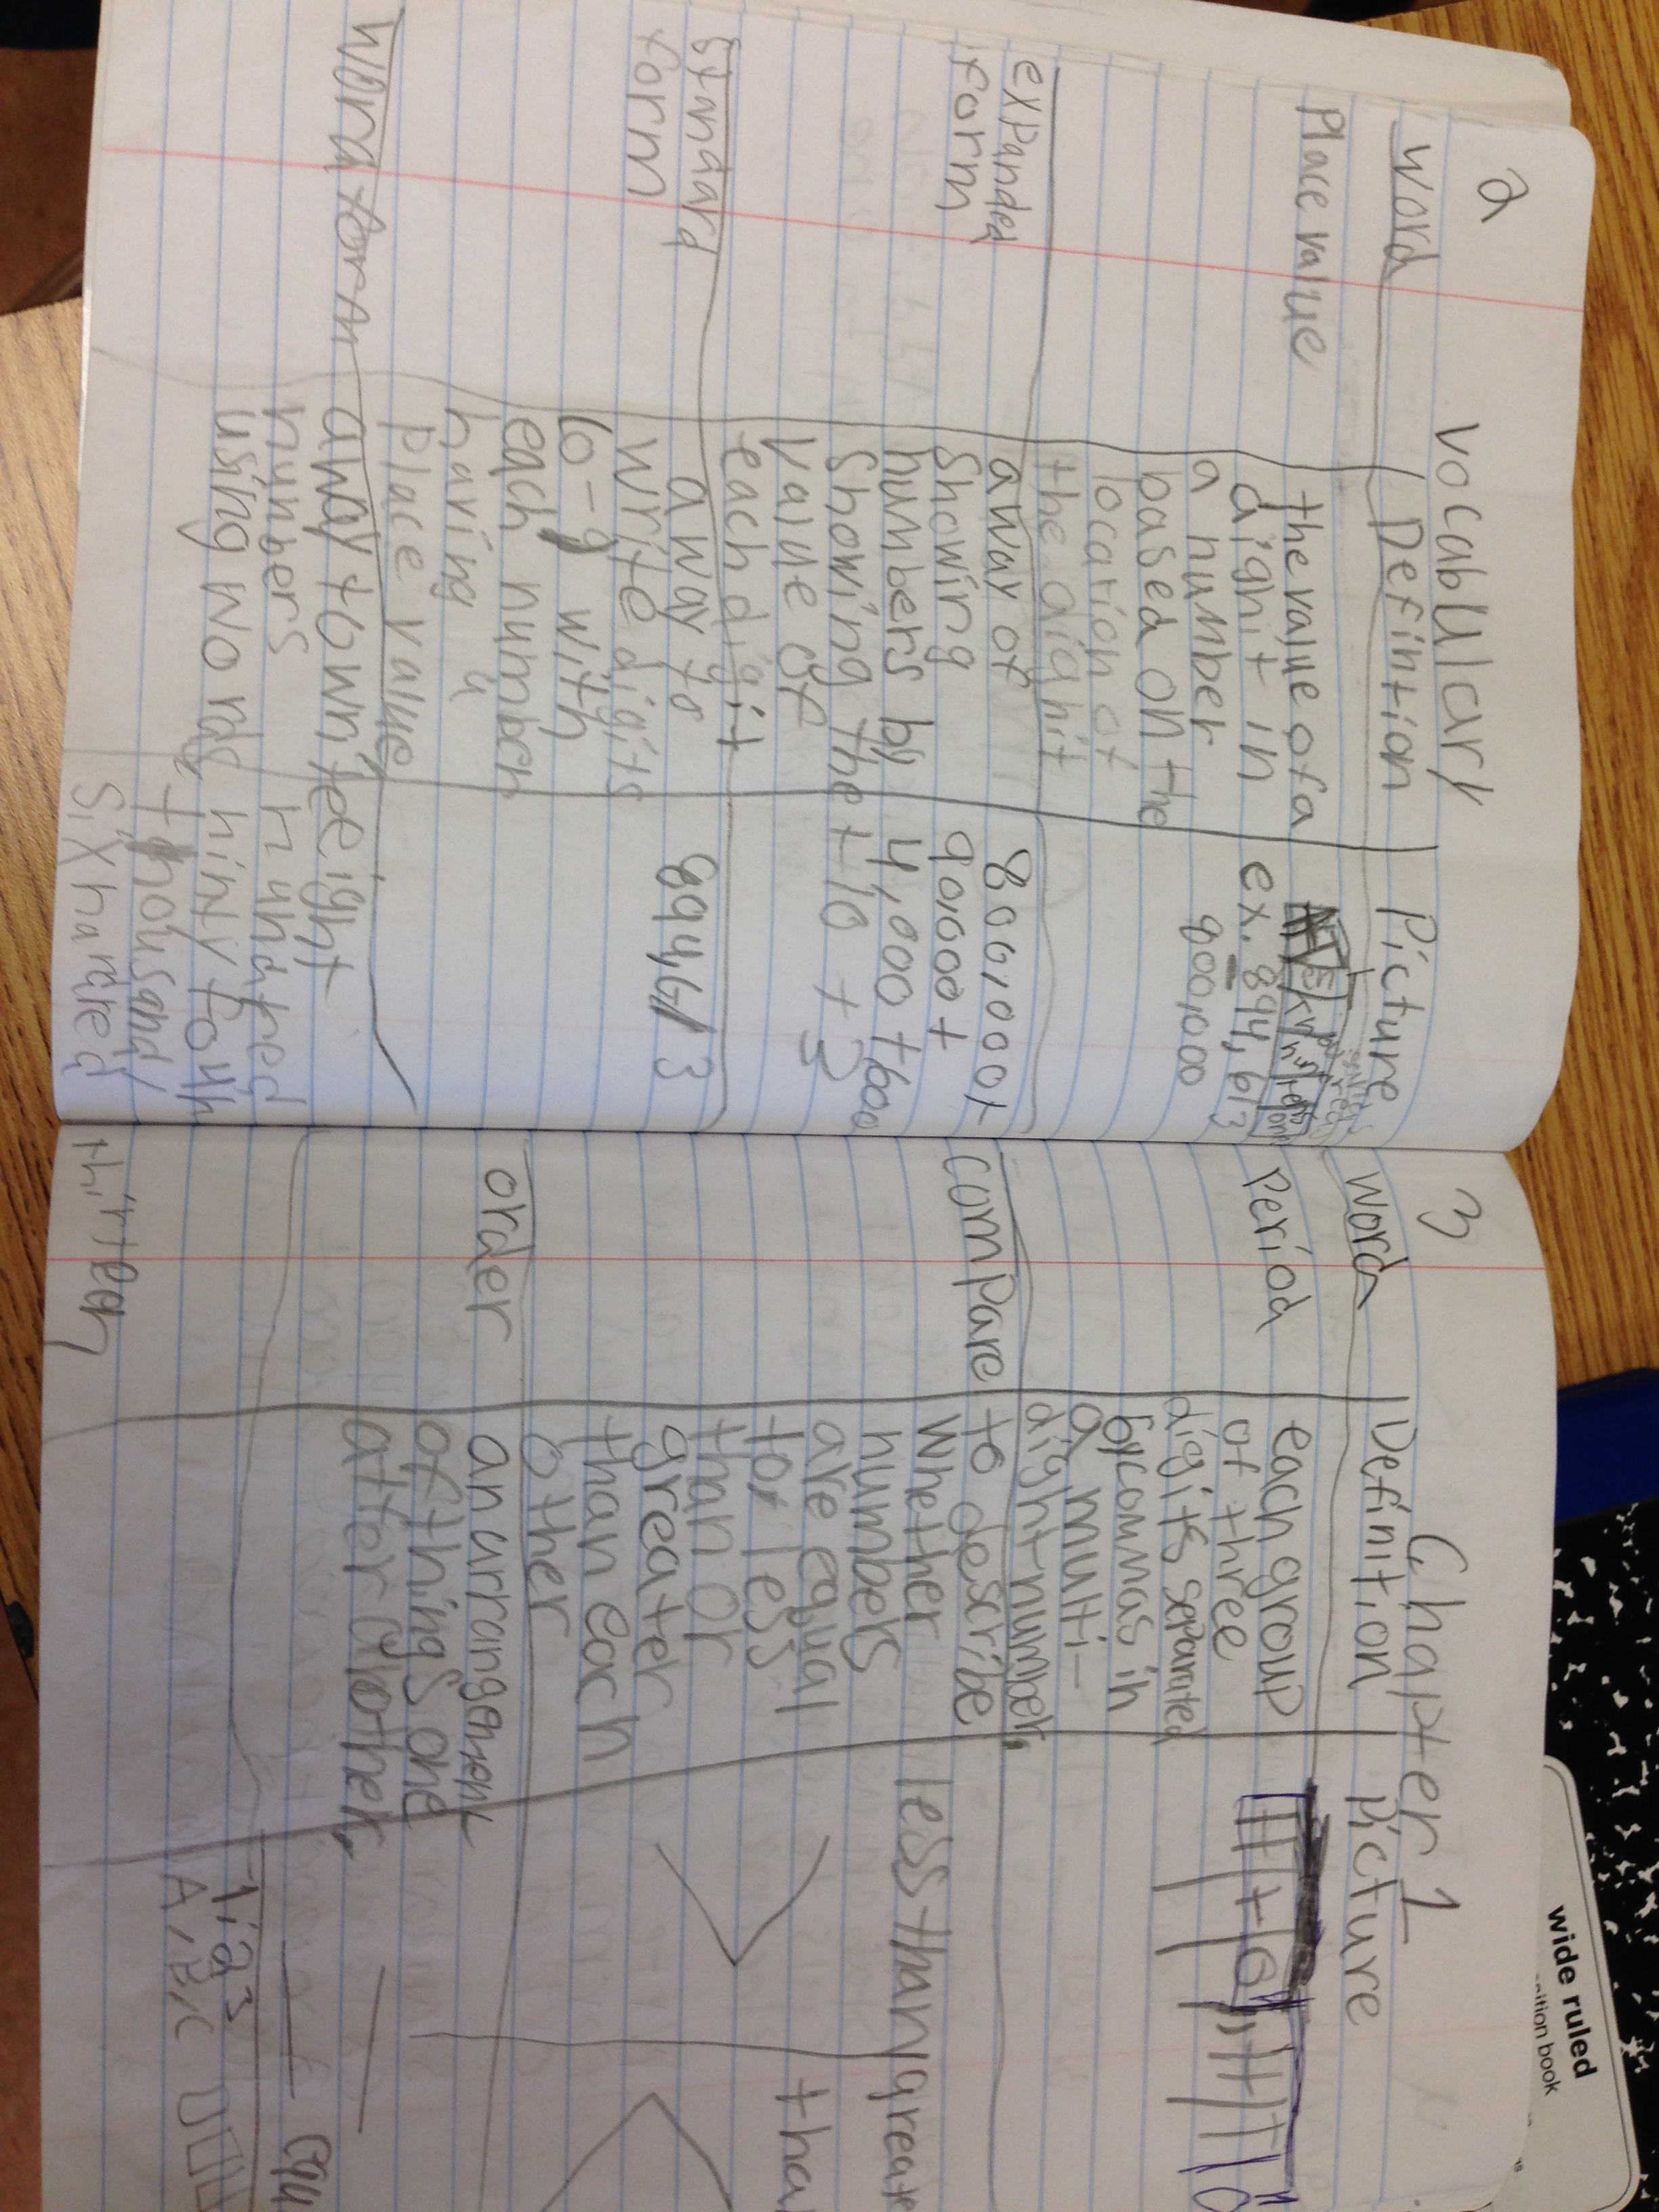 2
Vocabulary
Word
Defintion
Picture
Place value
the value of a
dighit in
a number
based on the
location of
the dighit
ex. 894,613
800,000
expanded
form
a way of
showing
numbers by
showing the
value of
each digit
800,000+
90,000+
4,000+600
+10+3
standard
form
a way to
write digits
0-9 with
each number
having a
place value
894,613
word form
a way to write
numbers
using words
eight
hundred
ninty fourh
thousand,
six hundred
thirteen
3
Chapter 1
Word
Definition
Picture
Period
each group
of three
digits seperated
by commas in
a multi-
dight number.
compare
to describe
whether
numbers
are equal
to, less
than or
greater
than each
other
less than
greate
tha
equ
order
an arrangement
of things one
after another.
1,2,3
A,B,C
wide ruled
sition book